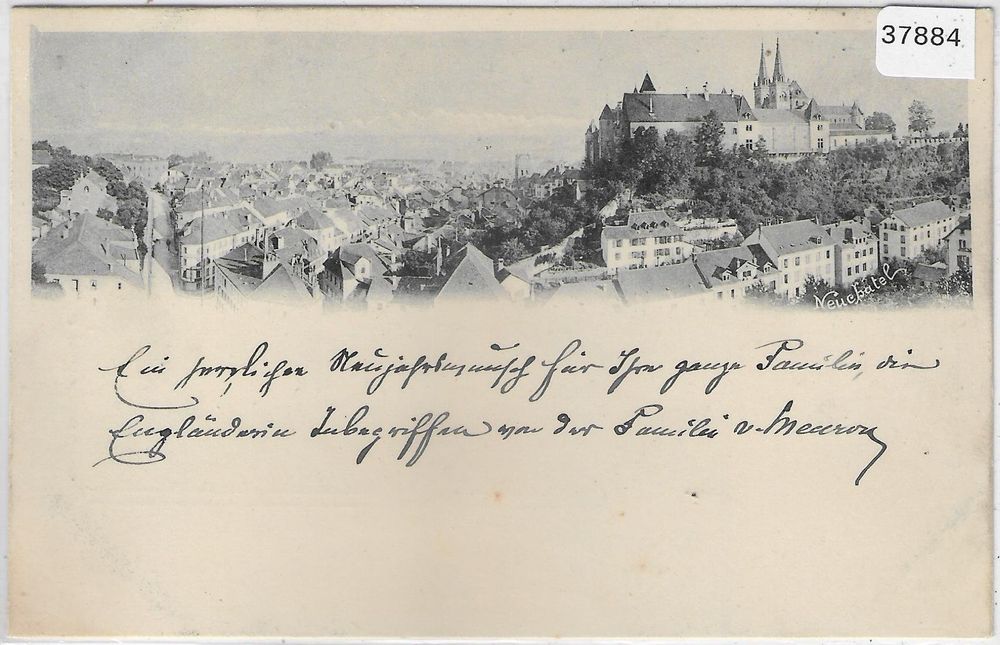 37884
Neuchatel
Ein herzlicher Neujahrswunsch für Ihre ganze Familie, die
Engländerin Inbegriffen von der Familie v. Meuron